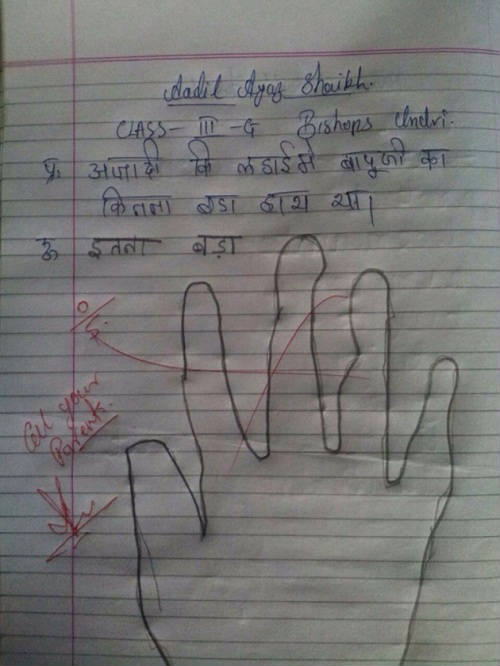 Aadil Ayaz Shaikh.
CLASS - III - G Bishops Undri.
प्र. आजादी कि लडाई मे बापूजी का
कितना बडा हाथ था|
उ. इतना बड़ा
0/5.
Call your
Parents.